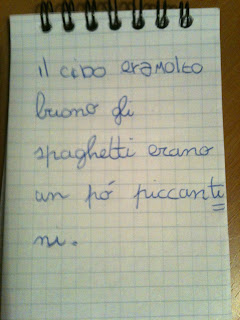 il cibo eramolto
buono gli
spaghetti erano
un pó piccanti
ni.